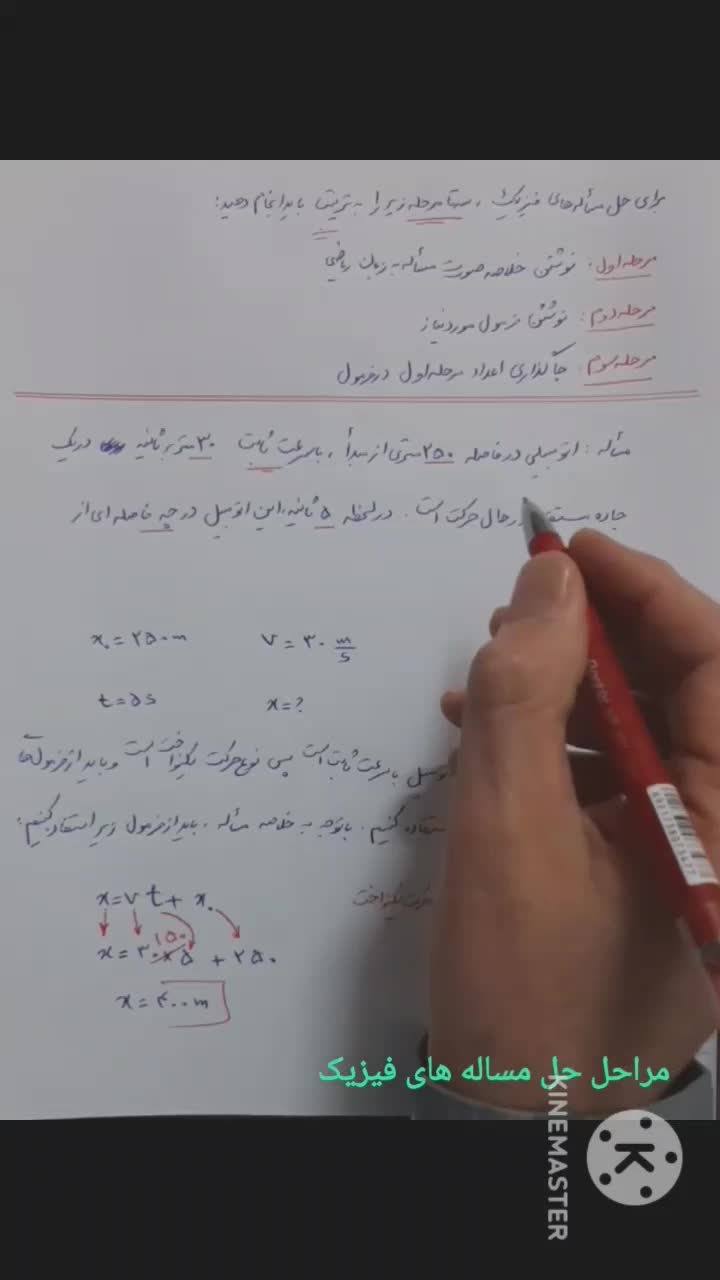 برای حل مسأله‌های فیزیک، ستا مرحله زیر را به ترتیب باید انجام دهید:
مرحله اول: نوشتن خلاصه صورت مسأله به زبان ریاضی
مرحله دوم: نوشتن فرمول مورد نیاز
مرحله سوم: جاگذاری اعداد مرحله اول در فرمول
مسأله: اتومبیلی در فاصله ۲۵۰ متری از مبدأ، با سرعت ثابت ۳۰ متر بر ثانیه در یک
جاده در حال حرکت است. در لحظه ۵ ثانیه، این اتومبیل در چه فاصله‌ای از
x₀ = ۲۵۰ m v = ۳۰ m/s
t = ۵ s x = ?
اتومبیل با سرعت ثابت است پس نوع حرکت یکنواخت است و باید از فرمول‌های
کنیم. با توجه به خلاصه مسأله، باید از فرمول زیر استفاده کنیم:
x = v t + x₀ حرکت یکنواخت
۱۵۰
x = ۳۰ × ۵ + ۲۵۰
x = ۴۰۰ m
مراحل حل مساله های فیزیک
KINEMASTER